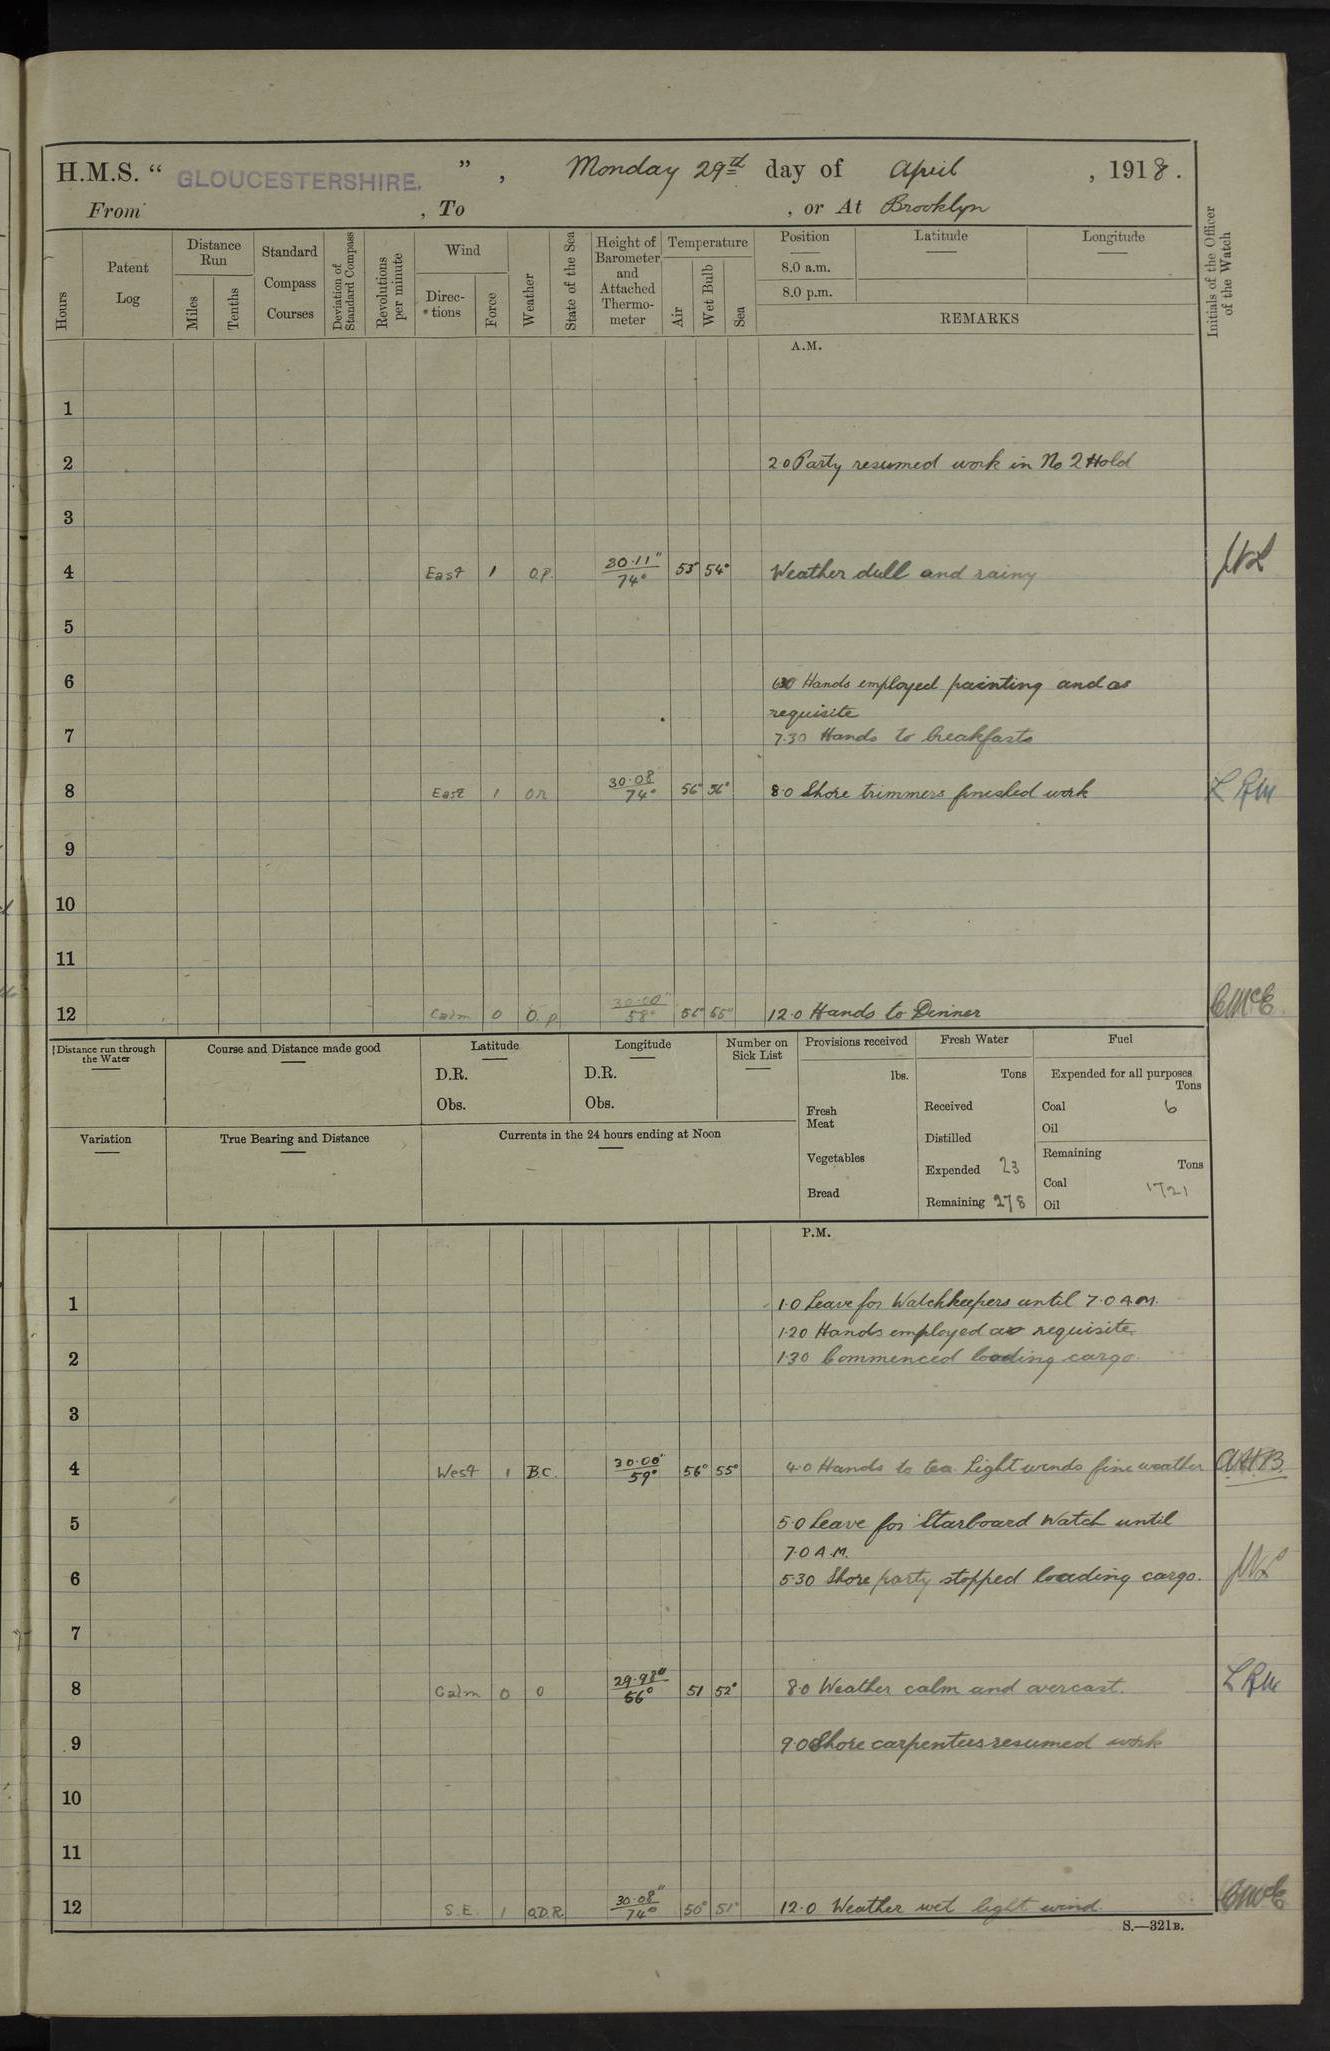 H.M.S. “ GLOUCESTERSHIRE. ” , Monday 29th day of April , 1918.
From , To , or At Brooklyn
Hours
Patent Log
Distance Run
Miles
Tenths
Standard Compass Courses
Deviation of Standard Compass
Revolutions per minute
Wind
Direc-tions
Force
Weather
State of the Sea
Height of Barometer and Attached Thermo-meter
Temperature
Air
Wet Bulb
Sea
Position
8.0 a.m.
8.0 p.m.
Latitude
Longitude
REMARKS
Initials of the Officer of the Watch
A.M.
1
2 2.0 Party resumed work in No 2 Hold
3
4 East 1 O.P. 30.11" 74° 53° 54° Weather dull and rainy
5
6 6.30 Hands employed painting and as
requisite
7 7.30 Hands to breakfasts
8 East 1 OR 30.08 74° 56° 56° 8.0 Shore trimmers finished work
9
10
11
12 Calm 0 O.P. 30.00" 58° 56° 55° 12.0 Hands to Dinner
Distance run through the Water
Course and Distance made good
Latitude
D.R.
Obs.
Longitude
D.R.
Obs.
Number on Sick List
Provisions received
lbs.
Fresh Meat
Vegetables
Bread
Fresh Water
Tons
Received
Distilled
Expended 23
Remaining 278
Fuel
Expended for all purposes
Tons
Coal 6
Oil
Remaining
Tons
Coal 1721
Oil
Variation
True Bearing and Distance
Currents in the 24 hours ending at Noon
P.M.
1 1.0 Leave for Watchkeepers until 7.0 A.M.
1.20 Hands employed as requisite
2 1.30 Commenced loading cargo.
3
4 West 1 B.C. 30.00" 59° 56° 55° 4.0 Hands to tea. Light winds fine weather
5 5.0 Leave for Starboard Watch until
7.0 A.M.
6 5.30 Shore party stopped loading cargo.
7
8 Calm 0 O 29.98" 56° 51 52° 8.0 Weather calm and overcast.
9 9.0 Shore carpenters resumed work
10
11
12 S.E. 1 O.D.R. 30.08" 74° 50° 51° 12.0 Weather wet light wind.
S.—321B.